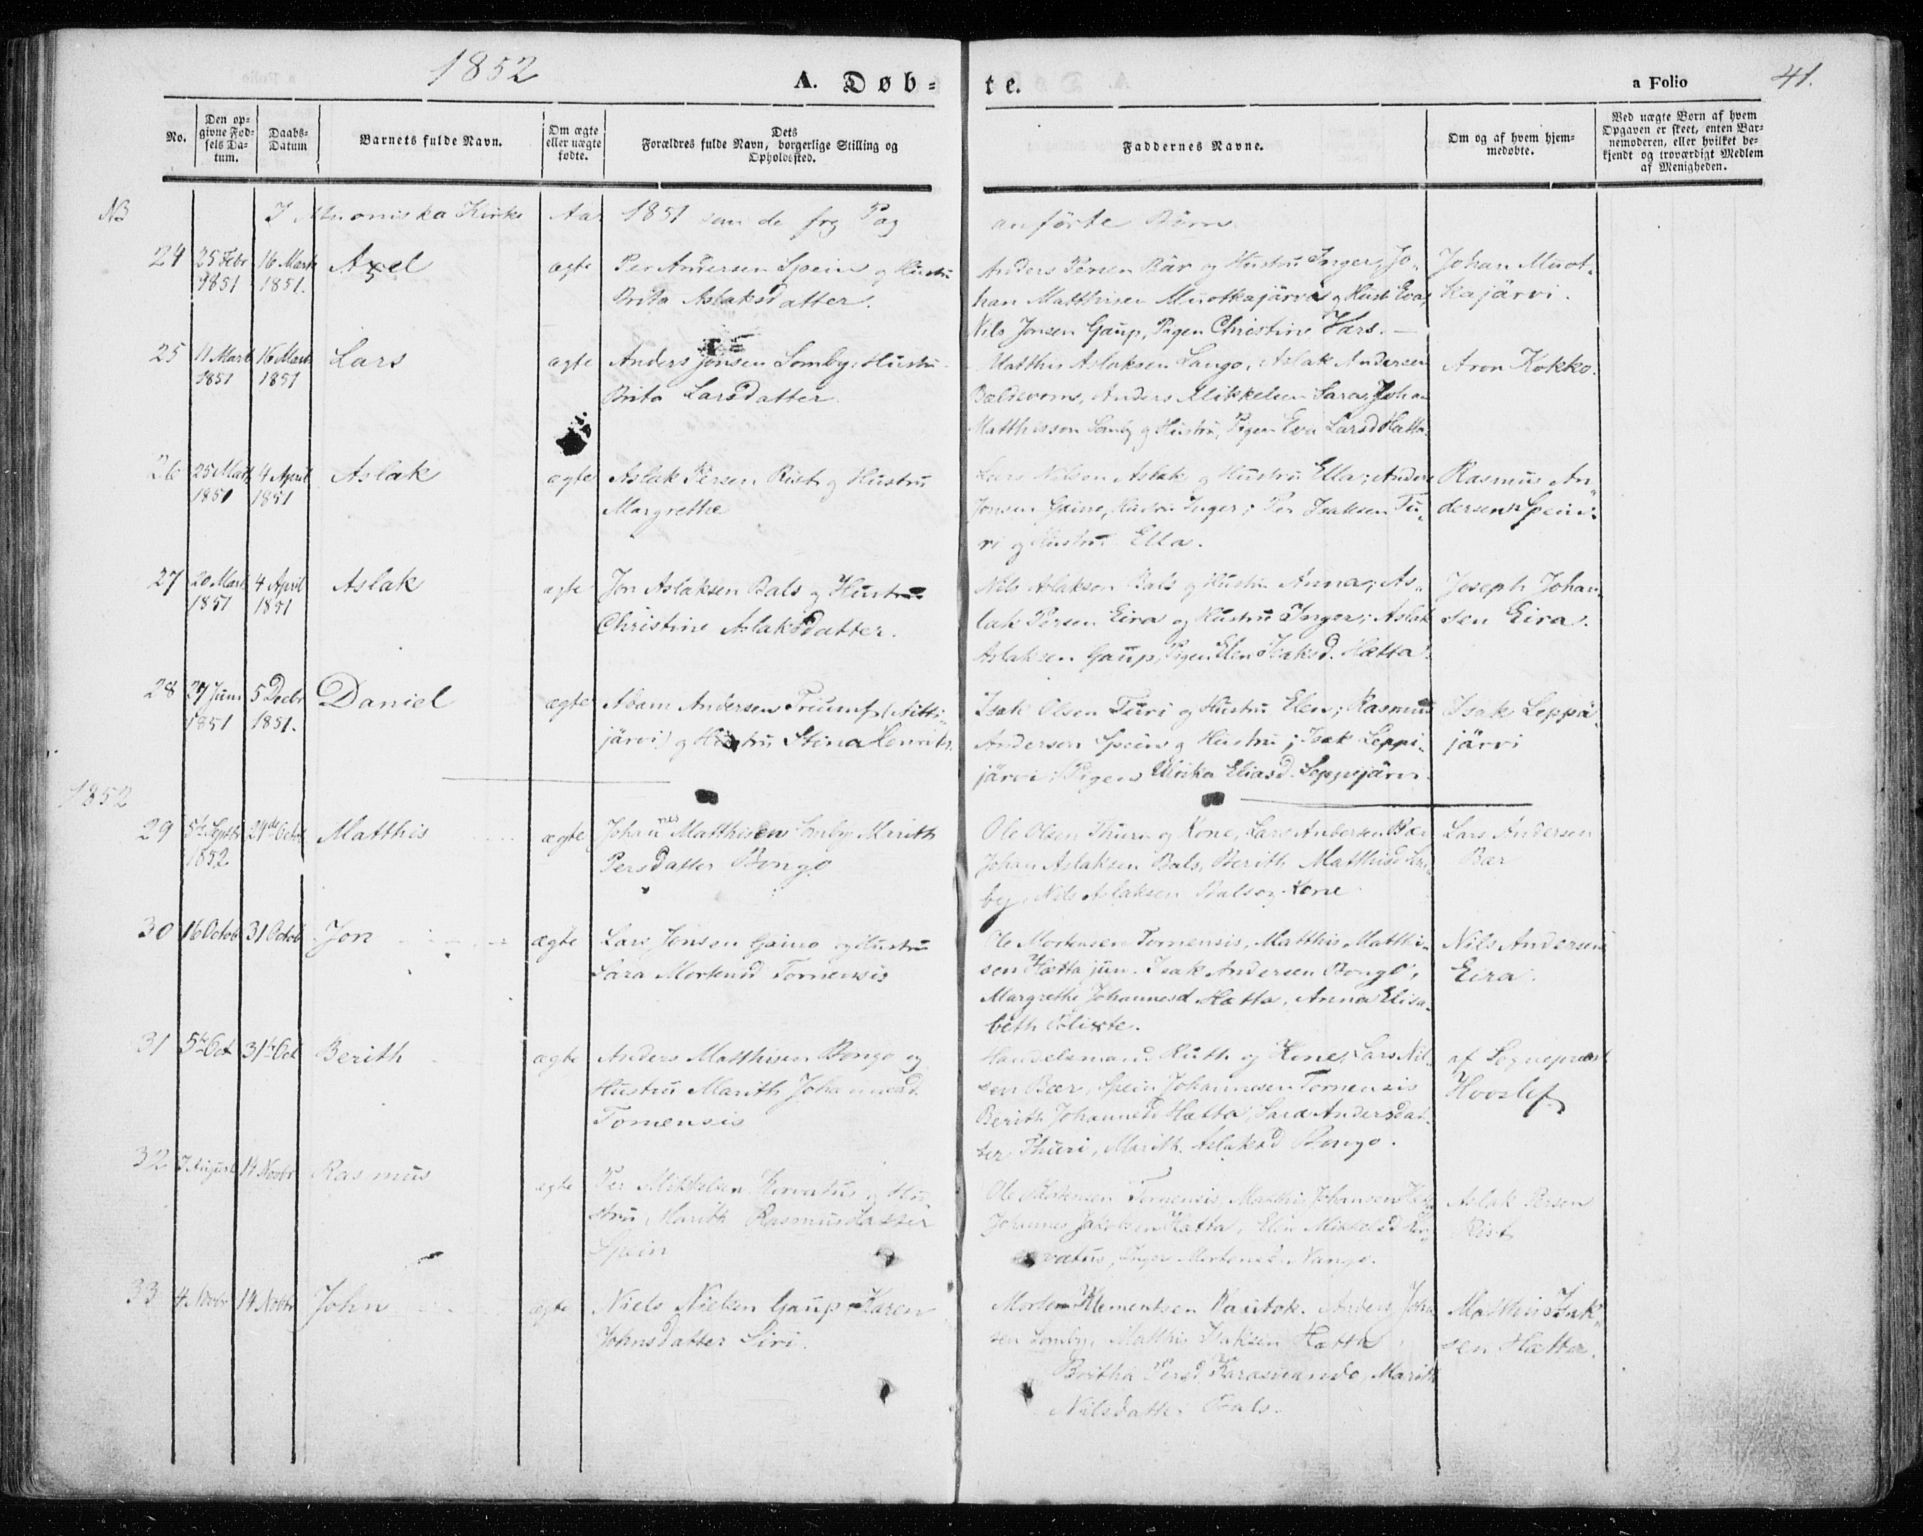 1852
A. Døb-
te.
a Folio
41.
No.
Den op-
givne Fød-
sels Da-
tum.
Daabs-
Datum
Barnets fulde Navn.
Om ægte
eller uægte
fødte.
Dets
Forældres fulde Navn, borgerlige Stilling og
Opholdssted.
Faddernes Navne.
Om og af hvem hjem-
medøbte.
Ved uægte Børn af hvem
Opgaven er skeet, enten Bar-
nemoderen, eller hvilket be-
kjendt og troværdigt Medlem
af Menigheden.
NB
I Muoniska Kirke Aar 1851 som de Pag anførte Børn
24
25 Febr
1851
16 Marts
1851.
Axel
ægte
Per Andersen Spein og Hustru
Brita Aslaksdatter.
Anders Persen Bär og Hustru Inger, Jo-
han Matthisen Muotkajärvi og Hust. Eva,
Nils Jonsen Gaup, Pigen Christine Vars.
Johan Muot-
kajärvi.
25
11 Mart
1851
16 Mart
1851
Lars
ægte
Anders Jonsen Somby, Hustru
Brita Larsdatter
Matthis Aslaksen Lango, Aslak Andersen
Baldevorn, Anders Mikkelsen Sara, Johan
Matthisson Somby og Hustru, Pigen Eva Larsd Hætta
Aron Kokko.
26
25 Mart
1851
4 April
1851
Aslak
ægte
Aslak Persen Rist og Hustru
Margrethe
Lars Nilsen Aslak og Hustru Ella; Anders
Jonsen Gaine, Hustru Inger; Per Isaksen Tu-
ri og Hustru Ella.
Rasmus An-
dersen Spein
27
20 Mart
1851
4 April
1851
Aslak
ægte
Jon Aslaksen Bals og Hustru
Christine Aslaksdatter.
Nils Aslaksen Bals og Hustru Anna; As-
lak Persen Eira og Hustru Inger; Aslak
Aslaksen Gaup, Pigen Elen Isaksd. Hætta.
Joseph Johan-
sen Eira.
28
27 Juni
1851
5 Decbr
1851.
Daniel
ægte
Adam Andersen Triumf (Aitti-
järvi) og Hustru Stina Henriks.
Isak Olsen Turi og Hustru Elen; Rasmus
Andersen Spein og Hustru; Isak Leppi-
järvi; Pigen Ulrika Eliasd. Leppejärvi
Isak Leppä-
järvi
1852
29
5te Septbr
1852
24de Octob
Matthis
ægte
Johannes Matthisen Somby Marith
Persdatter Bongo
Ole Olsen Thuri og Kone, Lars Andersen Bær
Johan Aslaksen Bals, Berith Matthisd Som-
by, Nils Aslaksen Bals og Kone
Lars Andersen
Bær
30
16 Octob
31 Octob
Jon
ægte
Lars Jonsen Gaino og Hustru
Sara Mortensd Tornensis
Ole Mortensen Tornensis, Matthis Matthi-
sen Hætta jun. Isak Andersen Bongo,
Margrethe Johannesd Hætta, Anna Elisa-
beth
Nils Andersen
Eira.
31
5te Oct
31te Oct
Berith
ægte
Anders Matthisen Bongo og
Hustru Marith Johannesd.
Tornensis
Handelsmand Ruth og Kone, Lars Nil-
sen Bær, Spein Johannesen Tornensis
Berith Johannesd Hætta, Sara Andersdat-
ter Thuri, Marith Aslaksd Bongo.
af Sognepræst
Hvoslef
32
7 August
14 Novbr
Rasmus
ægte
Per Mikkelsen Horvatus og Hu-
stru Marith Rasmusdatter
Spein
Ole Mortensen Tornensis, Matthis Johansen
Johannes Jakobsen Hætta, Elen Mikkelsd Hor-
vatus, Inger Mortensd Nango.
Aslak Persen
Rist
33
4 Novbr
14 Novbr
John
ægte
Niels Nielsen Gaup Karen
Johnsdatter Siri.
Morten Klementsen Kautok. Anders John-
sen Somby, Matthis Isaksen Hætta
Beritha Persd Karasuando, Marith
Nilsdatter Bals.
Matthis Isak-
sen Hætta.